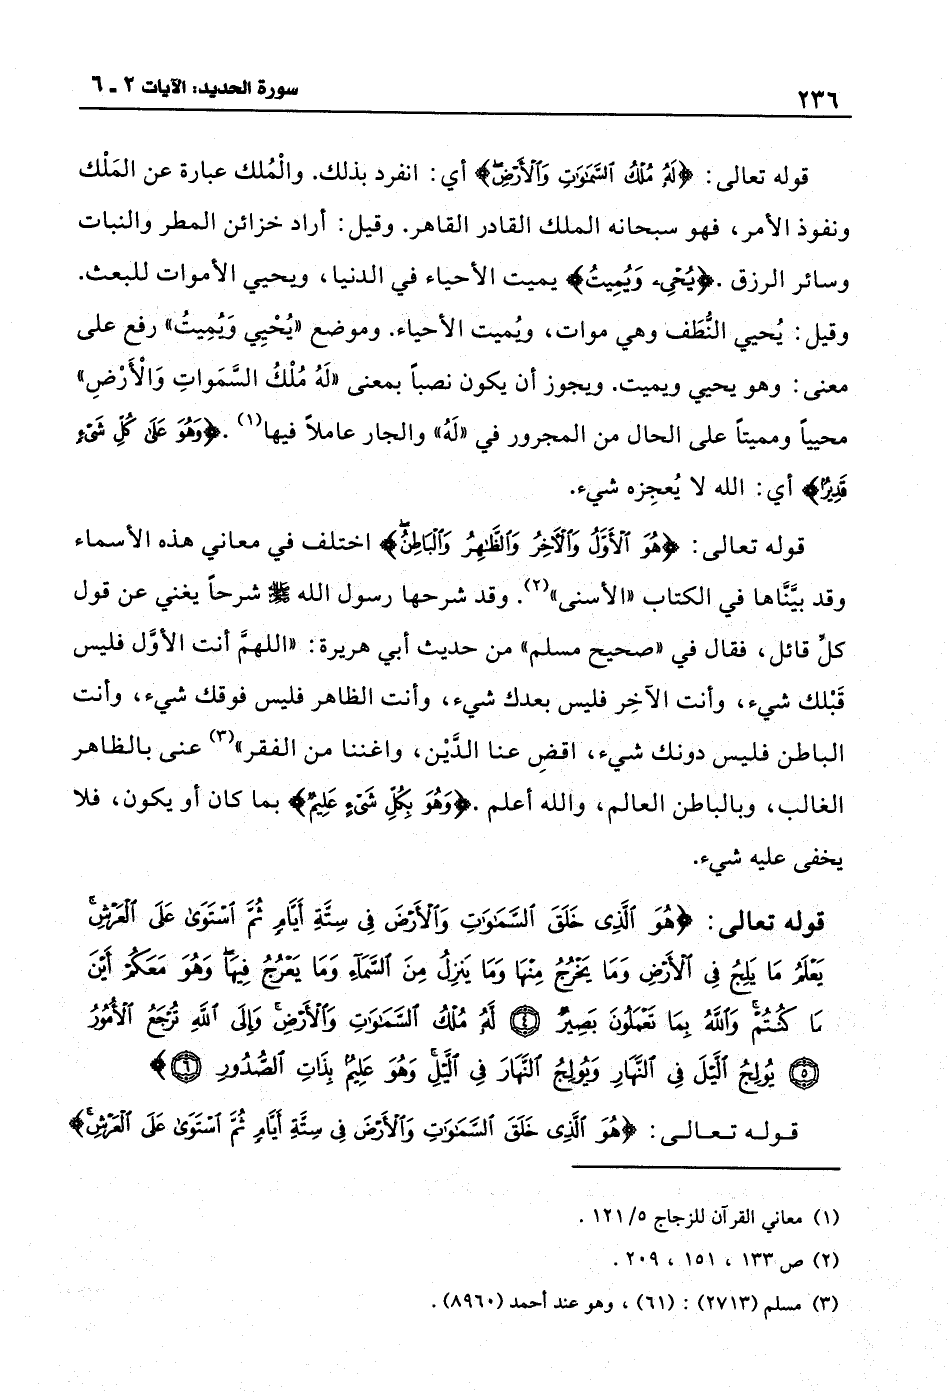 ٢٣٦ سورة الحديد: الآيات ٢ ـ ٦
قوله تعالى: ﴿لَهُ مُلْكُ السَّمَٰوَٰتِ وَالْأَرْضِ﴾ أي: انفرد بذلك. والْمُلك عبارة عن المَلْك
ونفوذ الأمر، فهو سبحانه الملك القادر القاهر. وقيل: أراد خزائن المطر والنبات
وسائر الرزق. ﴿يُحْيِۦ وَيُمِيتُ﴾ يميت الأحياء في الدنيا، ويحيي الأموات للبعث.
وقيل: يُحيي النُّطَف وهي موات، ويُميت الأحياء. وموضع «يُحْيِي وَيُمِيتُ» رفع على
معنى: وهو يحيي ويميت. ويجوز أن يكون نصباً بمعنى «لَهُ مُلْكُ السَّمَواتِ وَالْأَرْضِ»
محيياً ومميتاً على الحال من المجرور في «لَهُ» والجار عاملاً فيها(١). ﴿وَهُوَ عَلَىٰ كُلِّ شَىْءٍ
قَدِيرٌ﴾ أي: الله لا يُعجِزه شيء.
قوله تعالى: ﴿هُوَ الْأَوَّلُ وَالْآخِرُ وَالظَّٰهِرُ وَالْبَاطِنُ﴾ اختلف في معاني هذه الأسماء
وقد بيَّنَّاها في الكتاب «الأسنى»(٢). وقد شرحها رسول الله ﷺ شرحاً يغني عن قول
كلِّ قائل، فقال في «صحيح مسلم» من حديث أبي هريرة: «اللهمَّ أنت الأوَّل فليس
قَبْلك شيء، وأنت الآخِر فليس بعدك شيء، وأنت الظاهر فليس فوقك شيء، وأنت
الباطن فليس دونك شيء، اقضِ عنا الدَّيْن، واغننا من الفقر»(٣) عنى بالظاهر
الغالب، وبالباطن العالم، والله أعلم. ﴿وَهُوَ بِكُلِّ شَىْءٍ عَلِيمٌ﴾ بما كان أو يكون، فلا
يخفى عليه شيء.
قوله تعالى: ﴿هُوَ الَّذِى خَلَقَ السَّمَٰوَٰتِ وَالْأَرْضَ فِى سِتَّةِ أَيَّامٍ ثُمَّ اسْتَوَىٰ عَلَى الْعَرْشِ ۚ
يَعْلَمُ مَا يَلِجُ فِى الْأَرْضِ وَمَا يَخْرُجُ مِنْهَا وَمَا يَنزِلُ مِنَ السَّمَآءِ وَمَا يَعْرُجُ فِيهَا ۖ وَهُوَ مَعَكُمْ أَيْنَ
مَا كُنتُمْ ۚ وَاللَّهُ بِمَا تَعْمَلُونَ بَصِيرٌ ٤ لَّهُ مُلْكُ السَّمَٰوَٰتِ وَالْأَرْضِ ۚ وَإِلَى اللَّهِ تُرْجَعُ الْأُمُورُ
٥ يُولِجُ الَّيْلَ فِى النَّهَارِ وَيُولِجُ النَّهَارَ فِى الَّيْلِ ۚ وَهُوَ عَلِيمٌ بِذَاتِ الصُّدُورِ ٦﴾
قوله تعالى: ﴿هُوَ الَّذِى خَلَقَ السَّمَٰوَٰتِ وَالْأَرْضَ فِى سِتَّةِ أَيَّامٍ ثُمَّ اسْتَوَىٰ عَلَى الْعَرْشِ ۚ﴾
(١) معاني القرآن للزجاج ٥/ ١٢١ .
(٢) ص ١٣٣ ، ١٥١ ، ٢٠٩ .
(٣) مسلم (٢٧١٣) : (٦١) ، وهو عند أحمد (٨٩٦٠) .